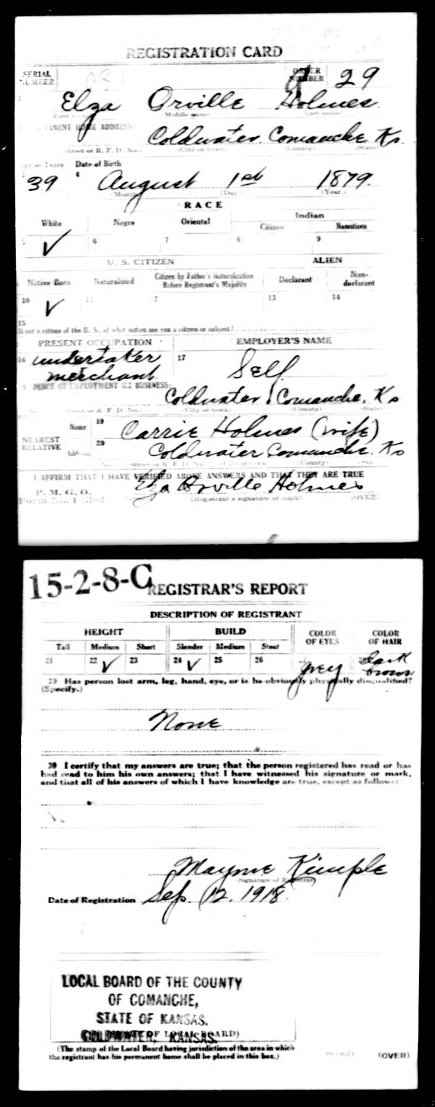 REGISTRATION CARD
SERIAL NUMBER
ORDER NUMBER 29
Elza Orville Holmes
PERMANENT HOME ADDRESS
Coldwater Comanche Ks.
(Street or R. F. D. No.) (City or town) (County) (State)
Age in Years Date of Birth
39 4 August 1st 1879.
(Month) (Day) (Year)
RACE
White Negro Oriental Indian
Citizen Noncitizen
5 ✓ 6 7 8 9
U. S. CITIZEN ALIEN
Native Born Naturalized Citizen by Father's Naturalization Before Registrant's Majority Declarant Non-declarant
10 ✓ 11 12 13 14
15
If not a citizen of the U. S., of what nation are you a citizen or subject?
PRESENT OCCUPATION EMPLOYER'S NAME
16 undertaker 17 Self
merchant
PLACE OF EMPLOYMENT OR BUSINESS:
Coldwater Comanche, Ks
(Street or R. F. D. No.) (City or town) (County) (State)
NEAREST RELATIVE
Name 19 Carrie Holmes (wife)
Address 20 Coldwater Comanche. Ks
I AFFIRM THAT I HAVE VERIFIED ABOVE ANSWERS AND THAT THEY ARE TRUE
P. M. G. O.
Form No. 1 (Red) Elza Orville Holmes
(Registrant's signature or mark) (OVER)
15-2-8-C REGISTRAR'S REPORT
DESCRIPTION OF REGISTRANT
HEIGHT BUILD COLOR OF EYES COLOR OF HAIR
Tall Medium Short Slender Medium Stout
21 22 ✓ 23 24 ✓ 25 26 grey dark brown
29 Has person lost arm, leg, hand, eye, or is he obviously physically disqualified?
(Specify.)
None
30 I certify that my answers are true; that the person registered has read or has
had read to him his own answers; that I have witnessed his signature or mark,
and that all of his answers of which I have knowledge are true, except as follows:
Mayme Kimple
(Signature of Registrar)
Date of Registration Sep. 12, 1918
LOCAL BOARD OF THE COUNTY
OF COMANCHE,
STATE OF KANSAS.
COLDWATER, KANSAS.
(The stamp of the Local Board having jurisdiction of the area in which
the registrant has his permanent home shall be placed in this box.)
(OVER)